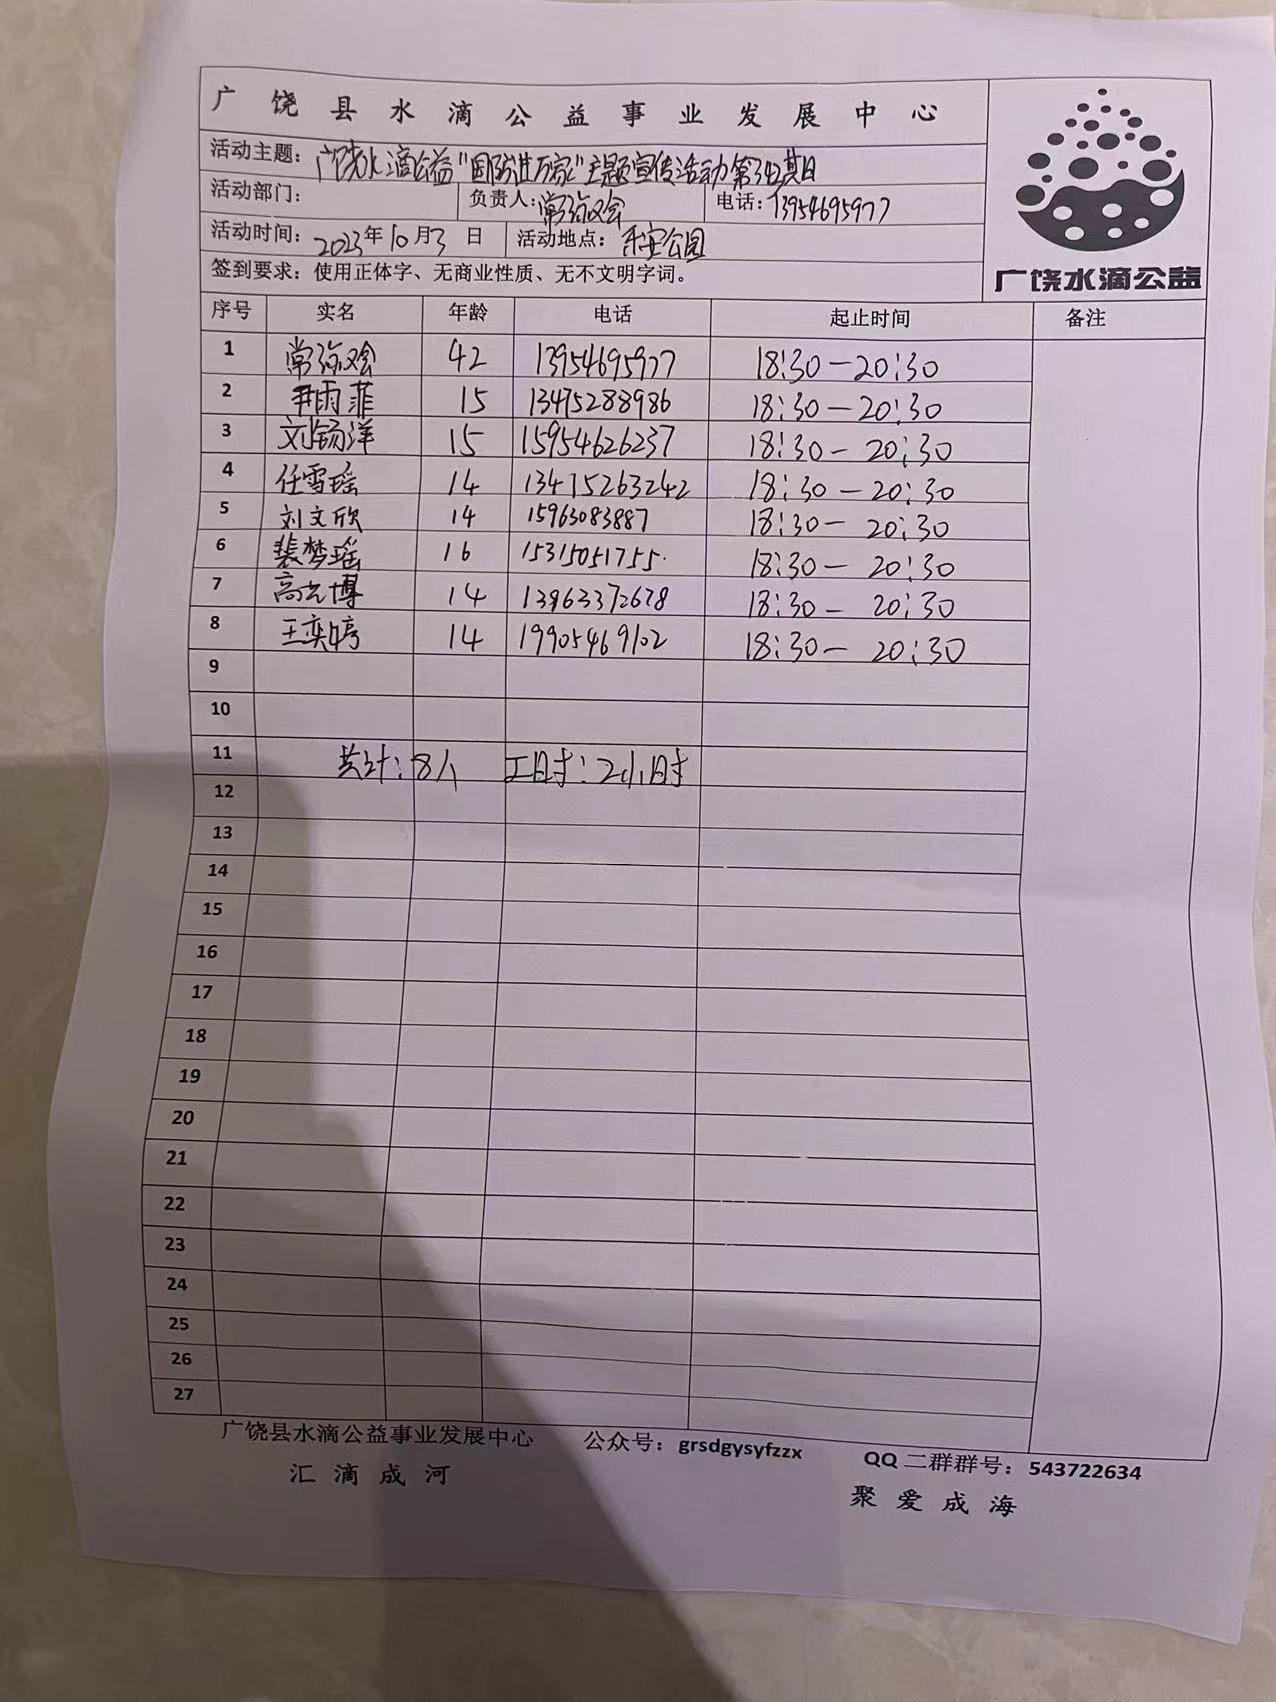 广饶县水滴公益事业发展中心
活动主题：广饶水滴公益"国防进万家"主题宣传活动第342期
广饶水滴公益
活动部门： 负责人：常弥双会 电话：13954695977
活动时间：2023年10月3日 活动地点：乐安公园
签到要求：使用正体字、无商业性质、无不文明字词。
序号 实名 年龄 电话 起止时间 备注
1 常弥双会 42 13954695977 18:30—20:30
2 尹雨菲 15 13475288986 18:30—20:30
3 刘钖洋 15 15954626237 18:30—20:30
4 任雪瑶 14 13475263242 18:30—20:30
5 刘文欣 14 15963083887 18:30—20:30
6 裴梦瑶 16 15315051755. 18:30—20:30
7 高博 14 13963372678 18:30—20:30
8 王奕婷 14 19905469102 18:30—20:30
9
10
11 共计：8人 工时：2小时
12
13
14
15
16
17
18
19
20
21
22
23
24
25
26
27
广饶县水滴公益事业发展中心 公众号：grsdgysyfzzx QQ二群群号：543722634
汇滴成河 聚爱成海